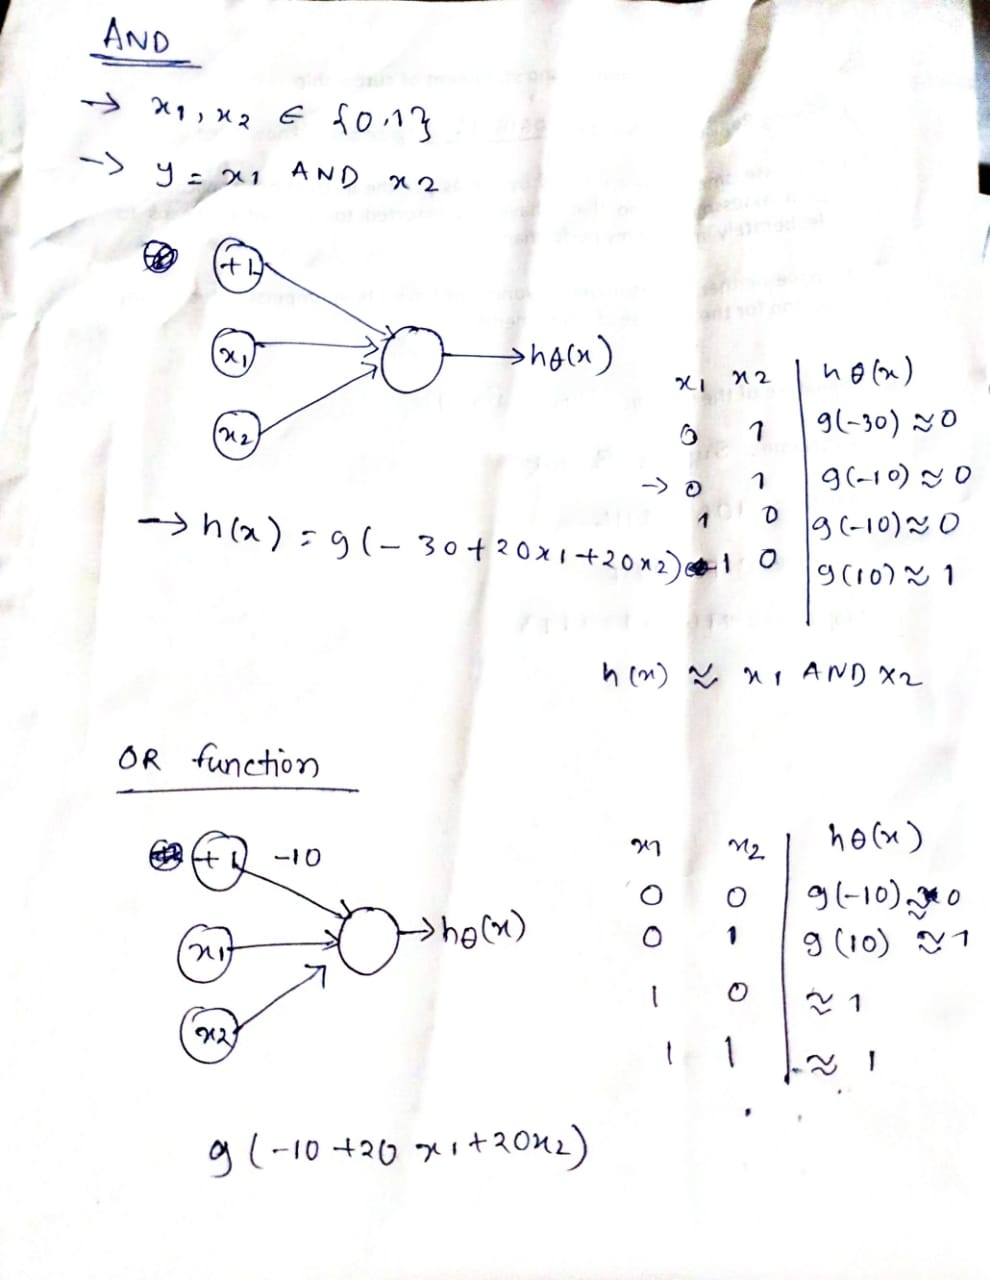 AND
→ x1, x2 ∈ {0,1}
→ y = x1 AND x2
+1
x1
x2
→ hθ(x)
x1 x2 | hθ(x)
0 1 | g(-30) ≈ 0
→ 0 1 | g(-10) ≈ 0
1 0 | g(-10) ≈ 0
1 0 | g(10) ≈ 1
→ h(x) = g(- 30 + 20x1 + 20x2)
h(x) ≈ x1 AND x2
OR function
+1 -10
x1
x2
→ hθ(x)
x1 x2 | hθ(x)
0 0 | g(-10) ≈ 0
0 1 | g(10) ≈ 1
1 0 | ≈ 1
1 1 | ≈ 1
g(-10 + 20 x1 + 20x2)